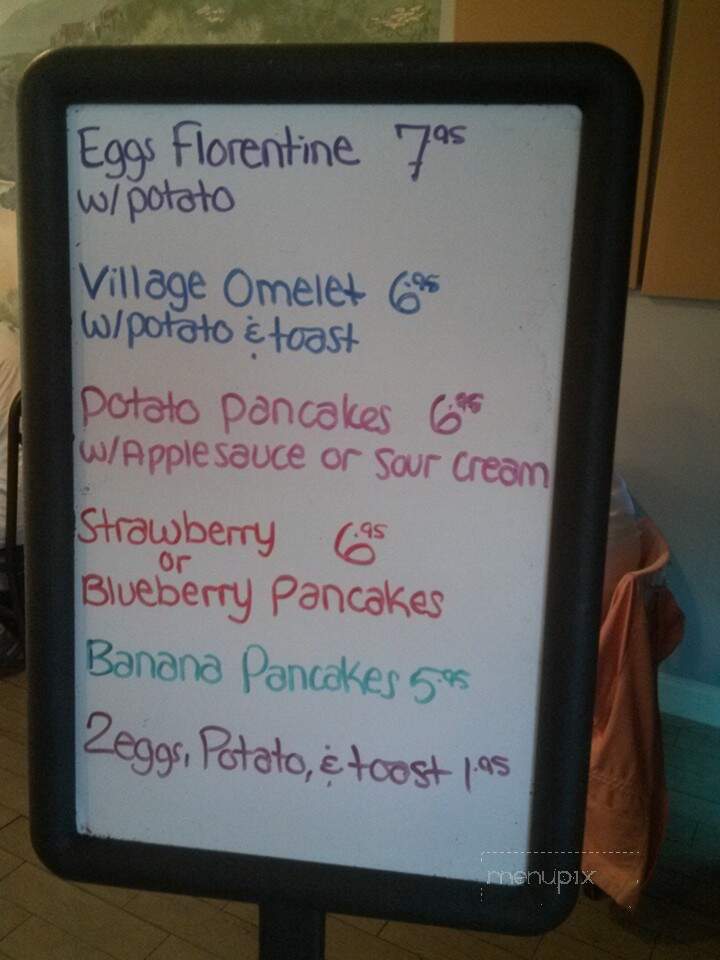 Eggs Florentine 7.95
w/potato
Village Omelet 6.95
w/potato & toast
Potato pancakes 6.95
w/Applesauce or Sour Cream
Strawberry 6.95
or
Blueberry Pancakes
Banana Pancakes 5.95
2eggs, Potato, & toast 1.95
menupix